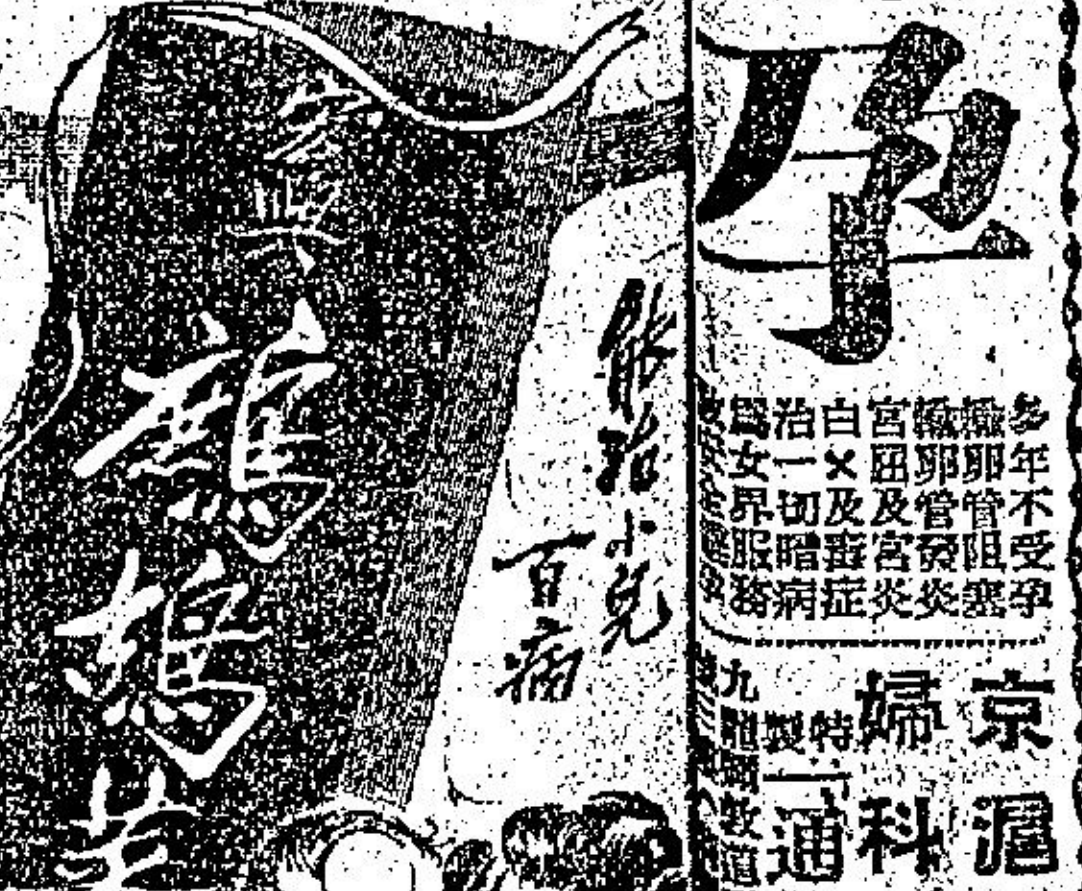 孕
多年不受孕
輸卵管阻塞
輸卵管發炎
宮及宮炎
白×及毒症
治一切暗病
爲女界服務
京滬
婦科
特製「通
九龍彌敦道
能治小兒
百病
宏興
鷓鴣菜